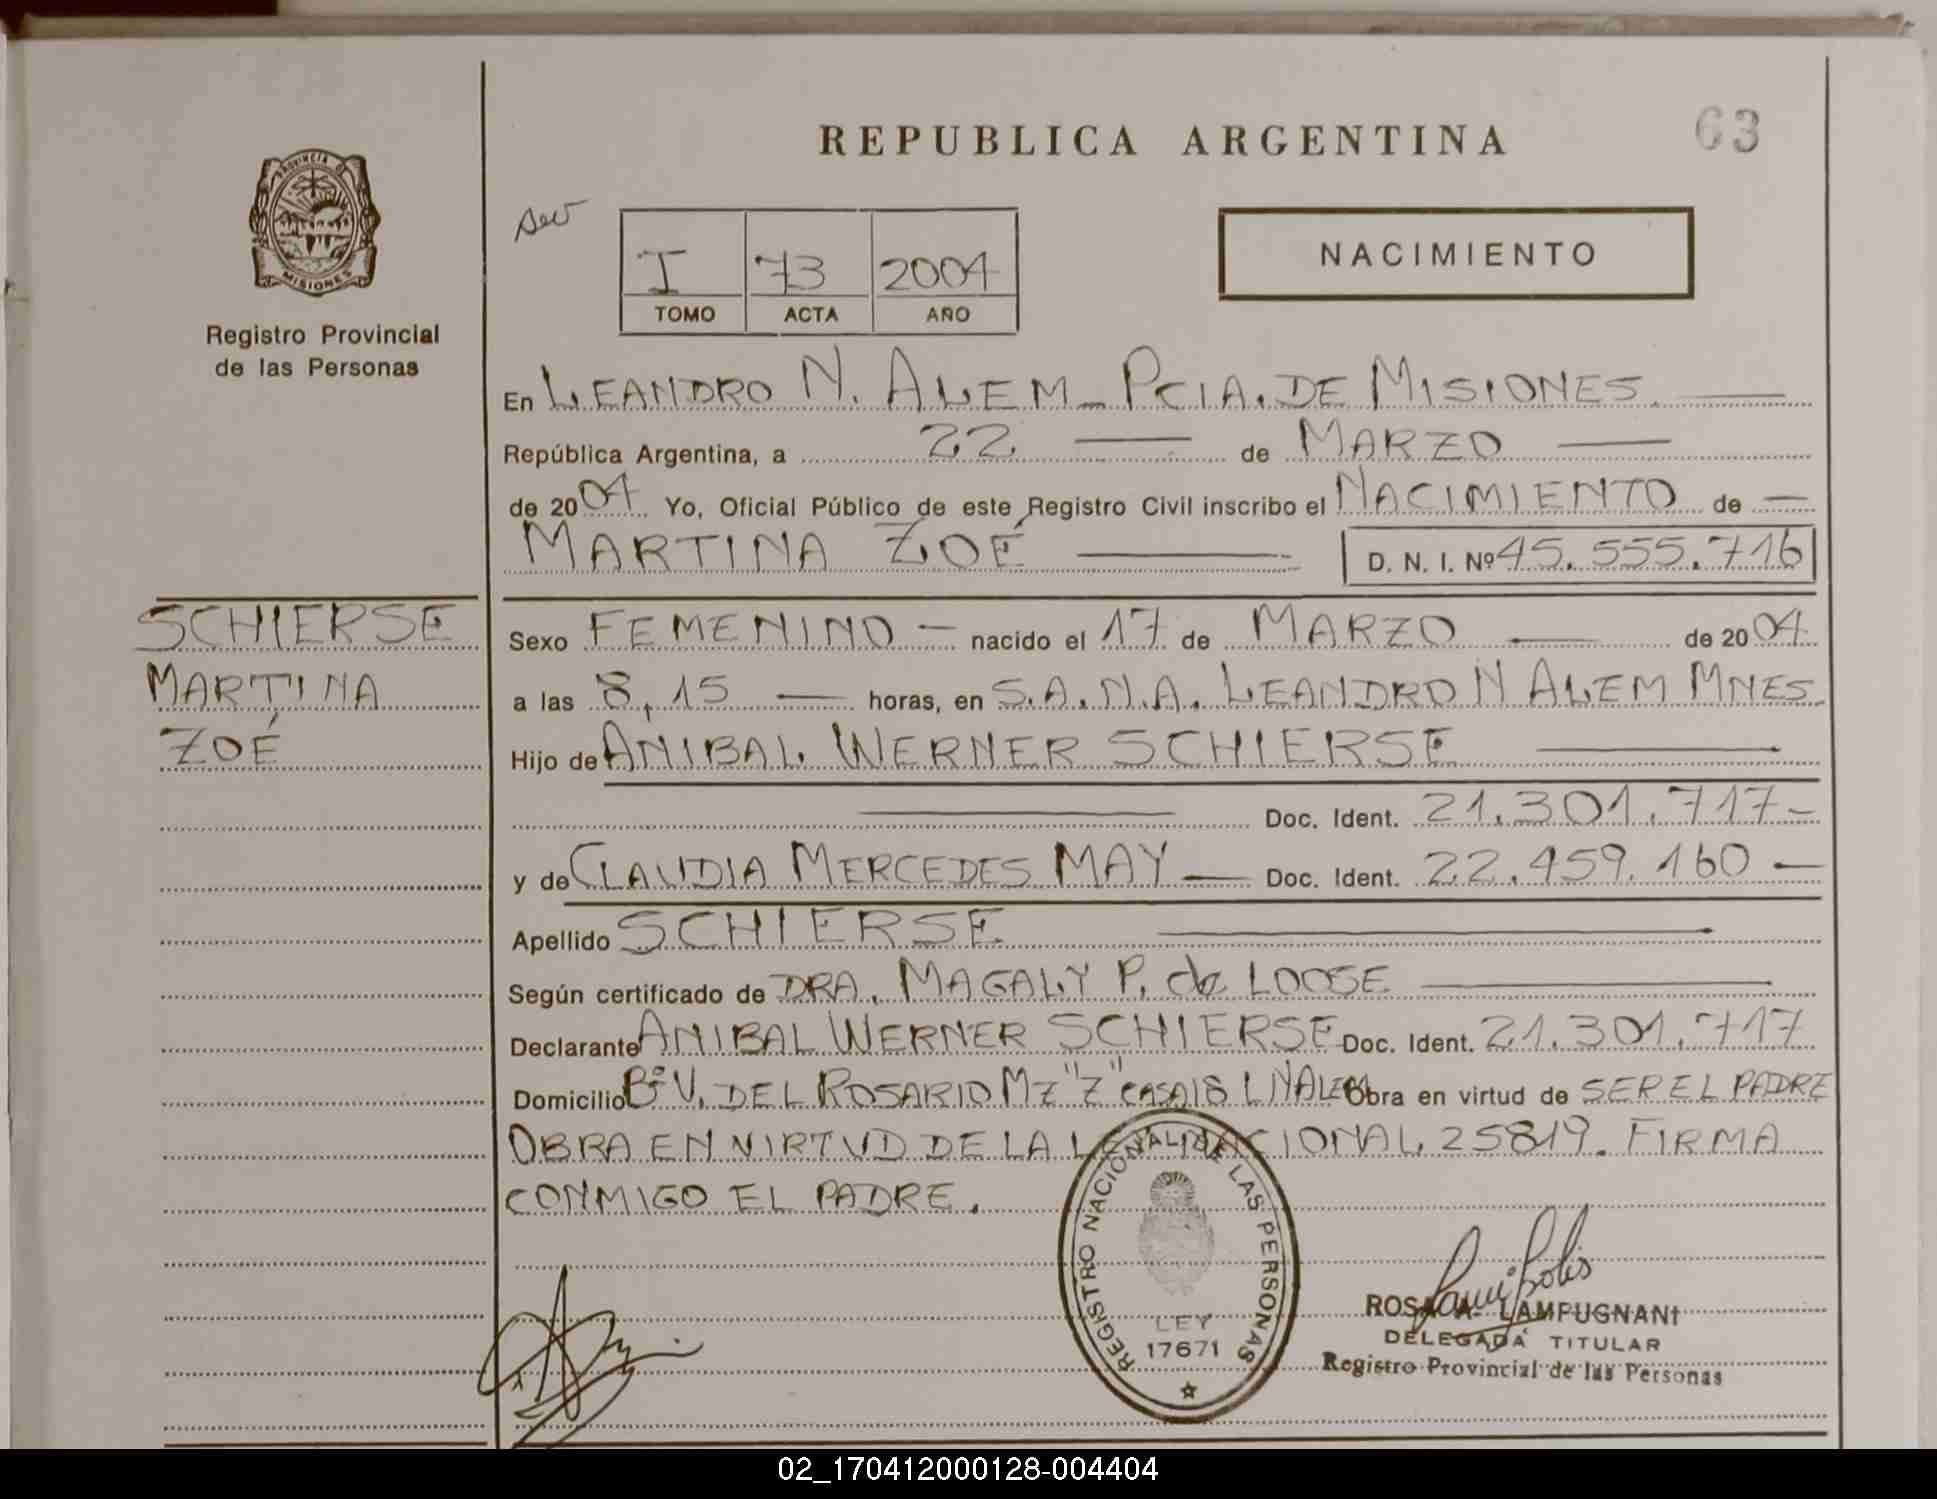 REPUBLICA ARGENTINA
63
PROVINCIA DE
MISIONES
Registro Provincial
de las Personas
I 73 2004
TOMO ACTA AÑO
NACIMIENTO
En LEANDRO N. ALEM_ PCIA. DE MISIONES.
República Argentina, a 22 de MARZO
de 2004 Yo, Oficial Público de este Registro Civil inscribo el NACIMIENTO de
MARTINA ZOÉ D. N. I. Nº 45.555.716
SCHIERSE
MARTINA
ZOÉ
Sexo FEMENINO — nacido el 17 de MARZO de 2004
a las 8,15 horas, en S.A.N.A. LEANDRO N ALEM MNES.
Hijo de ANIBAL WERNER SCHIERSE
Doc. Ident. 21.301.717-
y de CLAUDIA MERCEDES MAY — Doc. Ident. 22.459.160 —
Apellido SCHIERSE
Según certificado de DRA. MAGALY P. de LOOSE
Declarante ANIBAL WERNER SCHIERSE Doc. Ident. 21.301.717
Domicilio Bº V. DEL ROSARIO MZ "Z" CASA 18 L N ALEM Obra en virtud de SER EL PADRE
OBRA EN VIRTUD DE LA LEY NACIONAL 25819. FIRMA
CONMIGO EL PADRE.
REGISTRO NACIONAL DE LAS PERSONAS
LEY
17671
ROSA A. LAMPUGNANI
DELEGADA TITULAR
Registro Provincial de las Personas
02_170412000128-004404